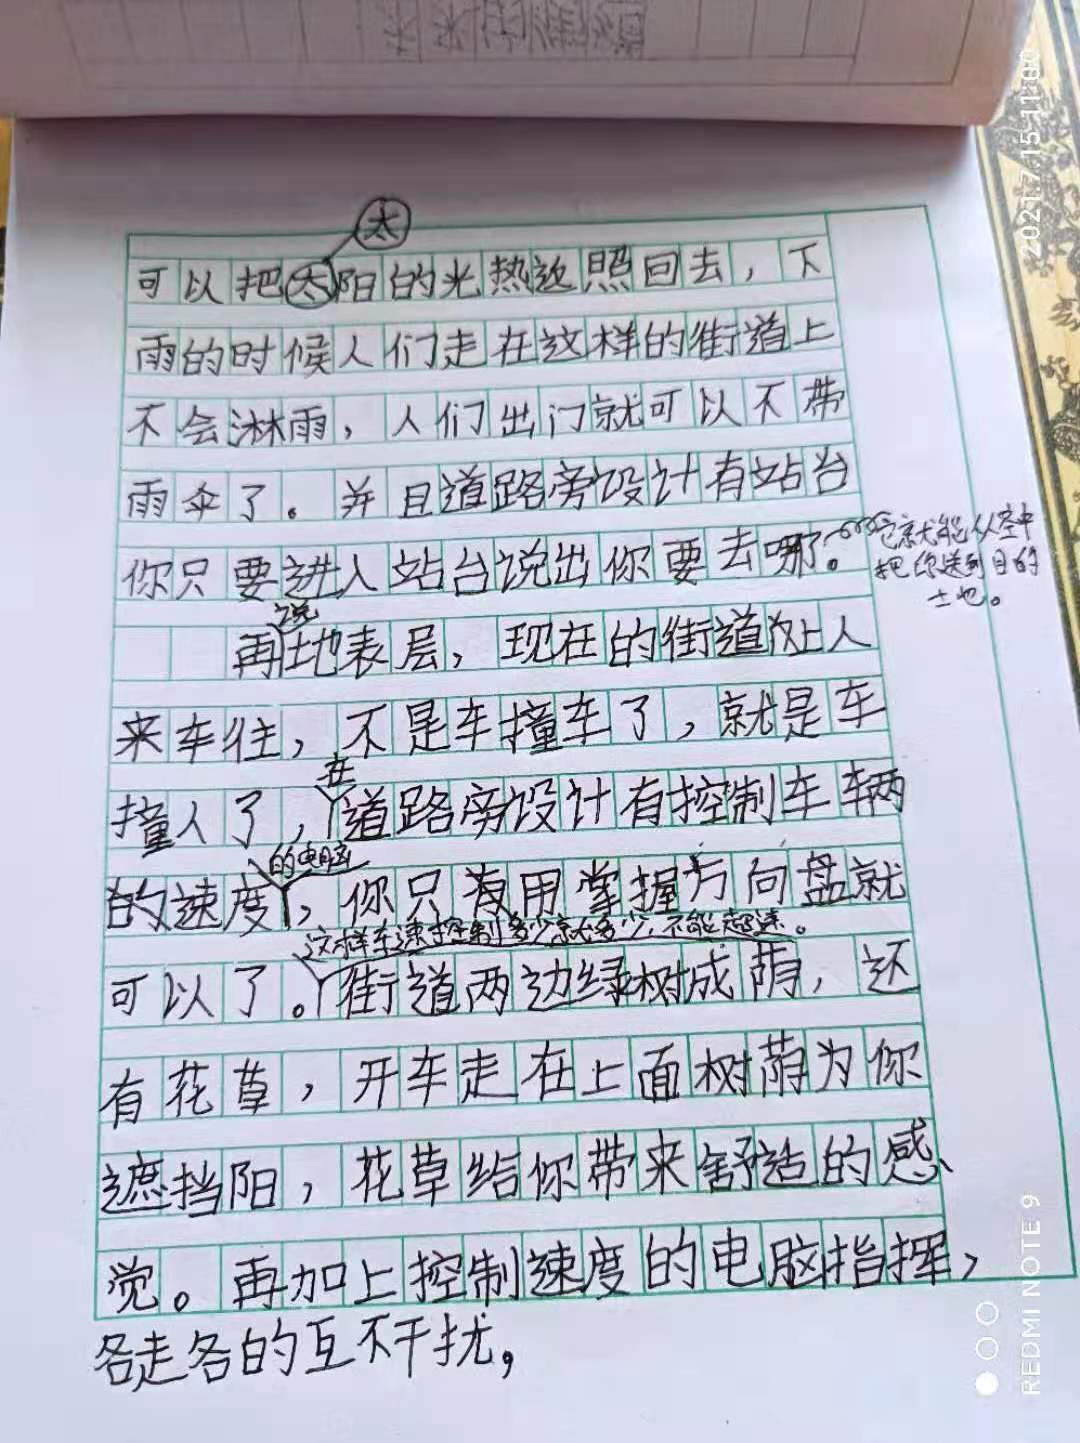 太
可以把太阳的光热边照回去，下
雨的时候人们走在这样的街道上
不会淋雨，人们出门就可以不带
雨伞了。并且道路旁设计有站台
你只要进入站台说出你要去哪。
它就能从空中
把你送到目的
地。
说
再地表层，现在的街道处人
来车往，不是车撞车了，就是车
在
撞人了，道路旁设计有控制车辆
的电脑
的速度，你只有用掌握方向盘就
这样车速控制多少就多少，不能超速。
可以了。街道两边绿树成荫，还
有花草，开车走在上面树荫为你
遮挡阳，花草给你带来舒适的感
觉。再加上控制速度的电脑指挥，
各走各的互不干扰，
2021.7.15 11:00
REDMI NOTE 9